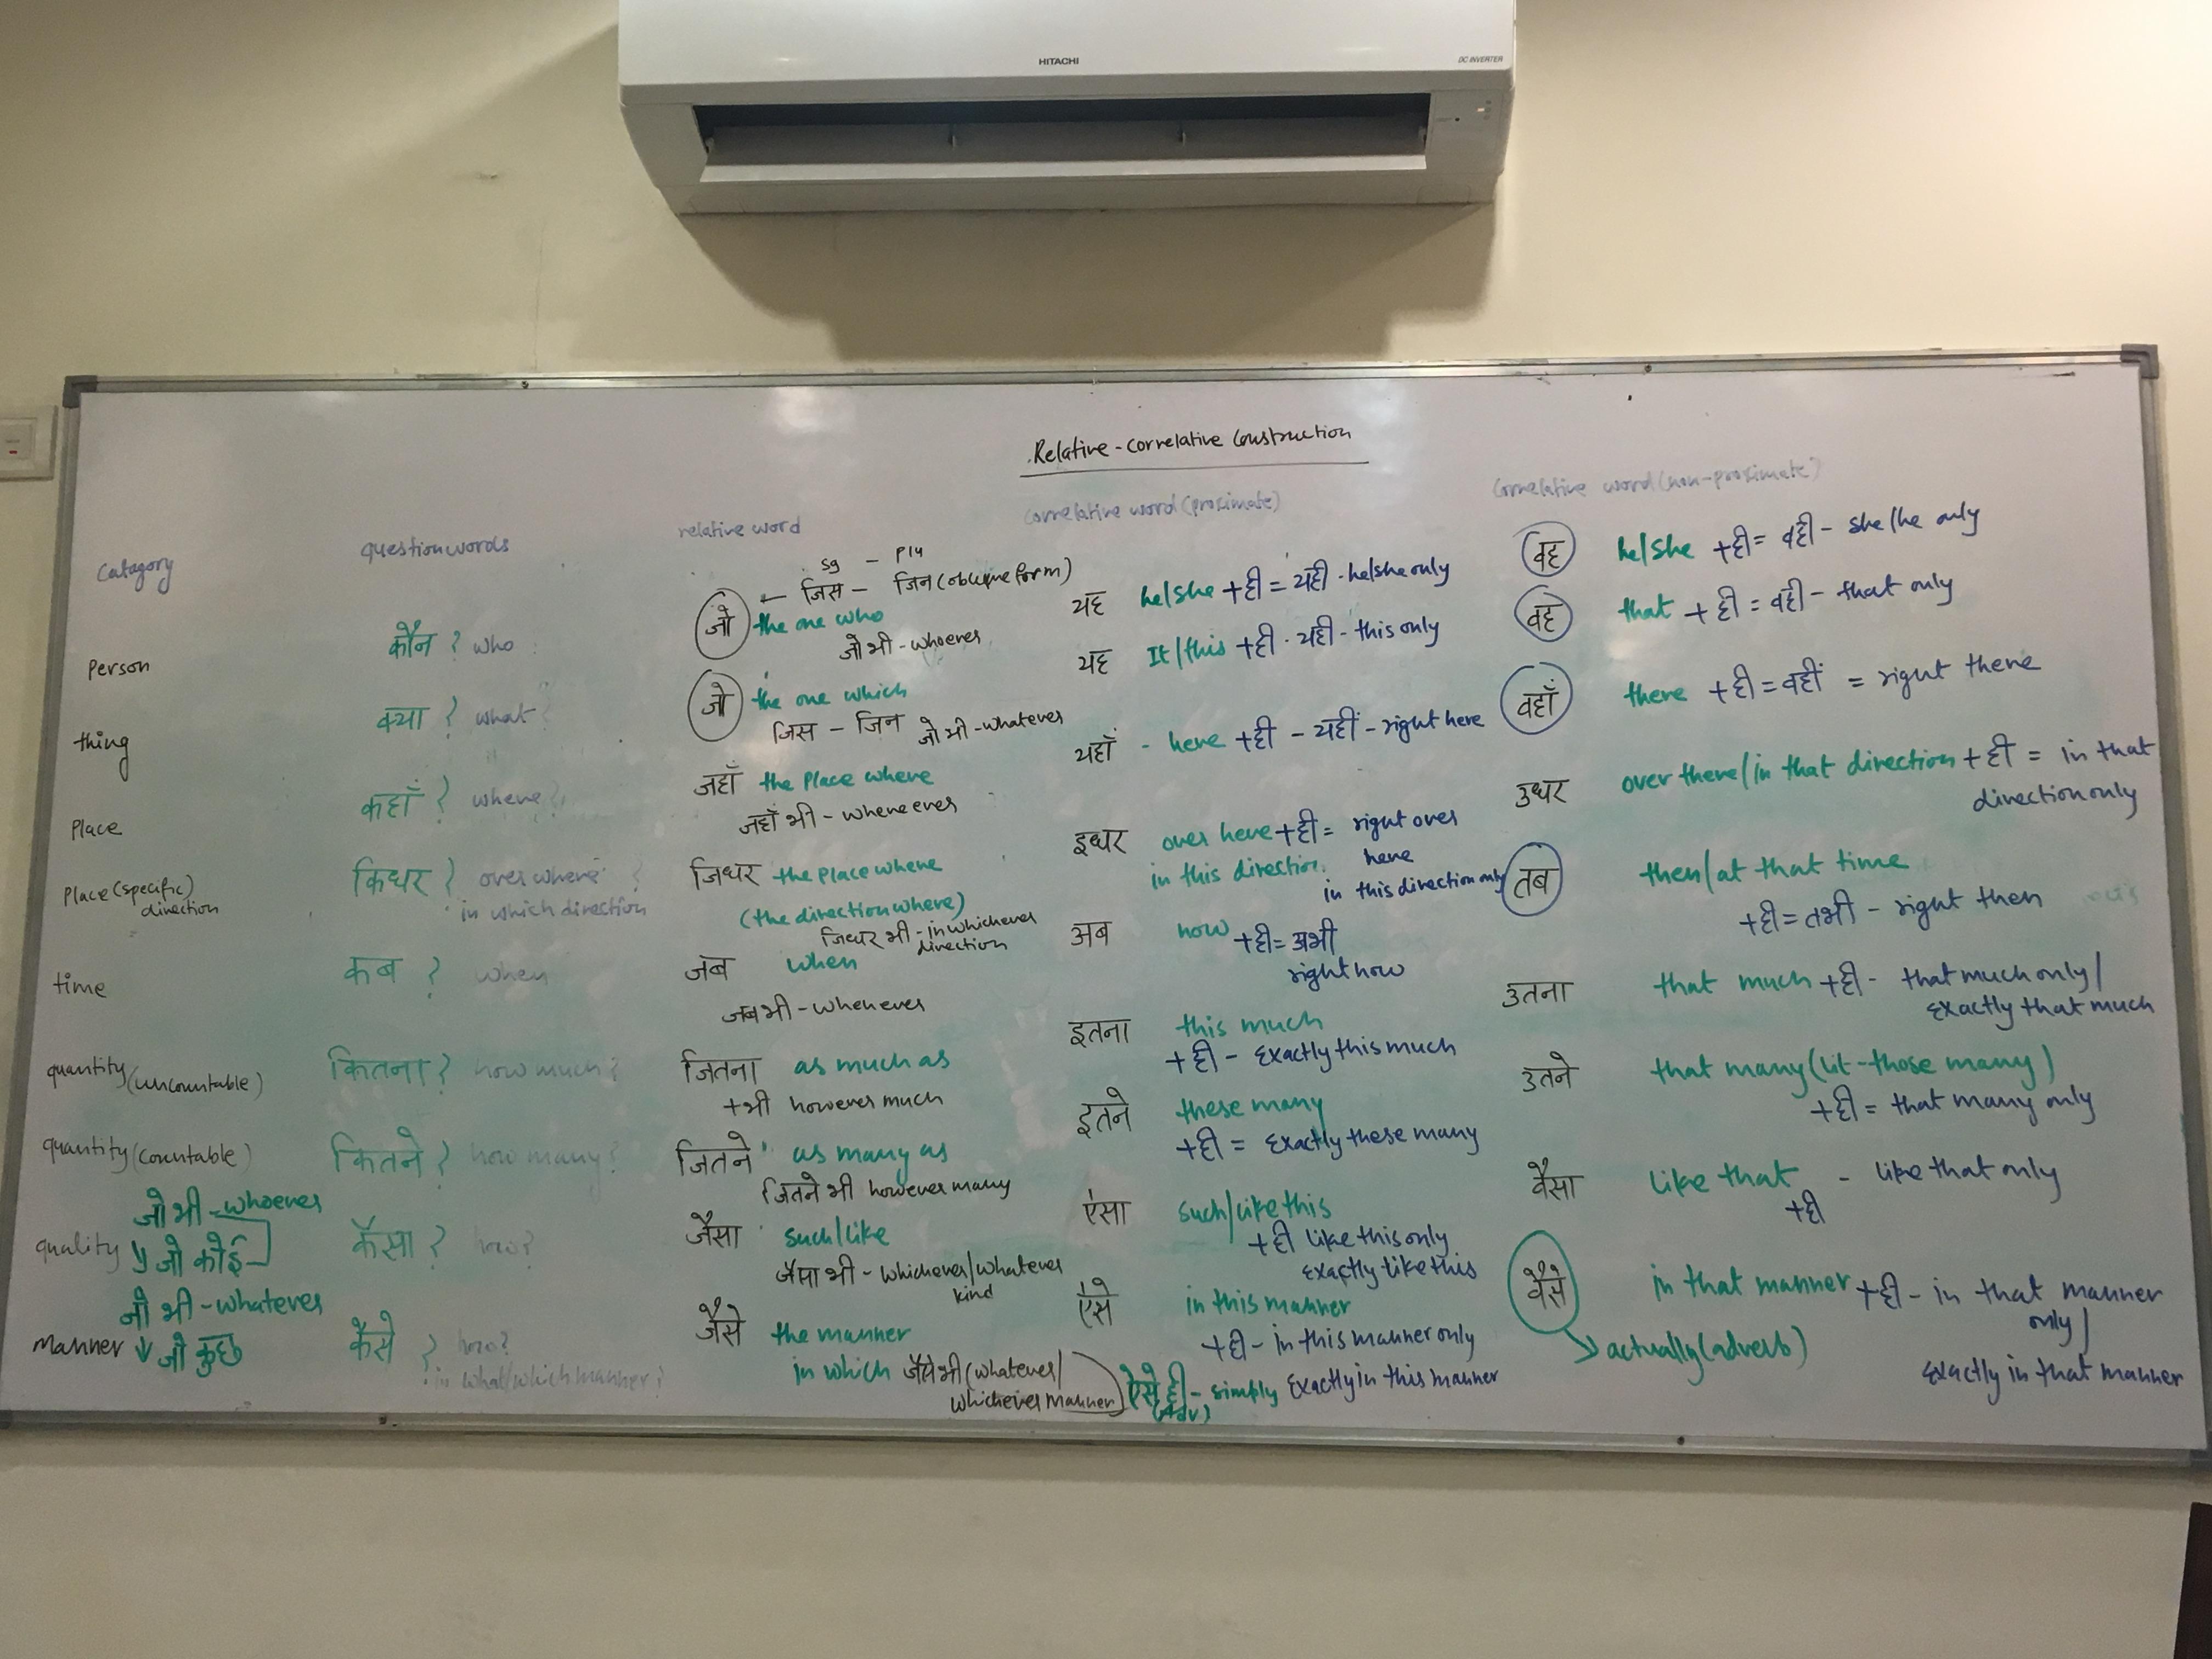 HITACHI
DC INVERTER
Relative-correlative construction
Catagory
question words
relative word
correlative word (proximate)
correlative word (non-proximate)
Person
कौन ? who
sg - plu
← जिस - जिन (oblique form)
जो the one who
जो भी - whoever
यह he/she + ही = यही - he/she only
वह he/she + ही = वही - she/he only
thing
क्या ? what?
जो the one which
जिस - जिन जो भी - whatever
यह It/this + ही - यही - this only
वह that + ही = वही - that only
Place
कहाँ ? where?
जहाँ the place where
जहाँ भी - whereever
यहाँ - here + ही - यहीं - right here
वहाँ there + ही = वहीं = right there
Place (specific)
direction
किधर ? over where ?
in which direction
जिधर the place where
(the direction where)
जिधर भी - in whichever
direction
इधर over here + ही = right over
here
in this direction
in this direction only
उधर over there/in that direction + ही = in that
direction only
time
कब ? when
जब when
जब भी - whenever
अब now + ही = अभी
right now
तब then/at that time
+ ही = तभी - right then
quantity (uncountable)
कितना ? how much?
जितना as much as
+ भी however much
इतना this much
+ ही - exactly this much
उतना that much + ही - that much only/
exactly that much
quantity (countable)
कितने ? how many?
जितने as many as
जितने भी however many
इतने these many
+ ही = exactly these many
उतने that many (lit-those many)
+ ही = that many only
जो भी - whoever
quality जो कोई
कैसा ? how?
जैसा such/like
जैसा भी - whichever/whatever
kind
ऐसा such/like this
+ ही like this only
exactly like this
वैसा like that - like that only
+ ही
जो भी - whatever
Manner जो कुछ
कैसे ? how?
in what/which manner?
जैसे the manner
in which जैसे भी (whatever/
whichever manner)
ऐसे in this manner
+ ही - in this manner only
exactly in this manner
ऐसे ही - simply
(Adv)
वैसे in that manner + ही - in that manner
only/
exactly in that manner
actually (adverb)